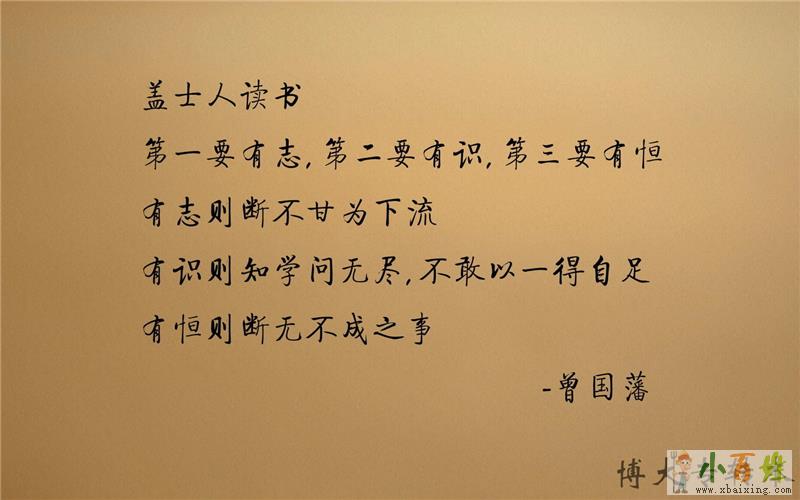 盖士人读书
第一要有志,第二要有识,第三要有恒
有志则断不甘为下流
有识则知学问无尽,不敢以一得自足
有恒则断无不成之事
-曾国藩
博大
小百姓
www.xbaixing.com